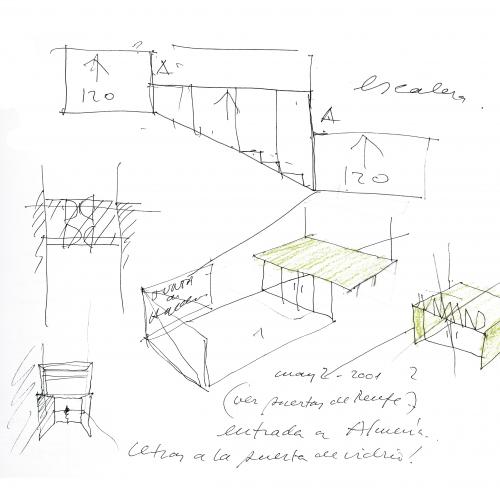 A
120
escalera.
A
120
1
may 2-2001 2
(ver puertas de Renfe)
entrada a Almería.
letras a la puerta de vidrio!